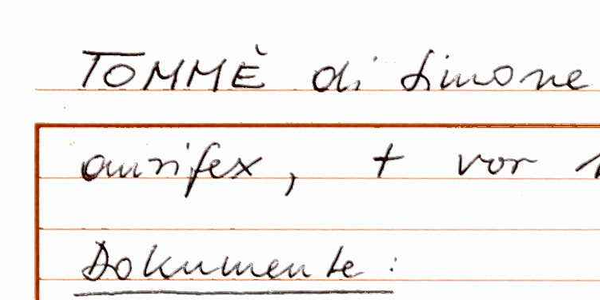 TOMMÈ di Simone
aurifex, † vor 1
Dokumente: